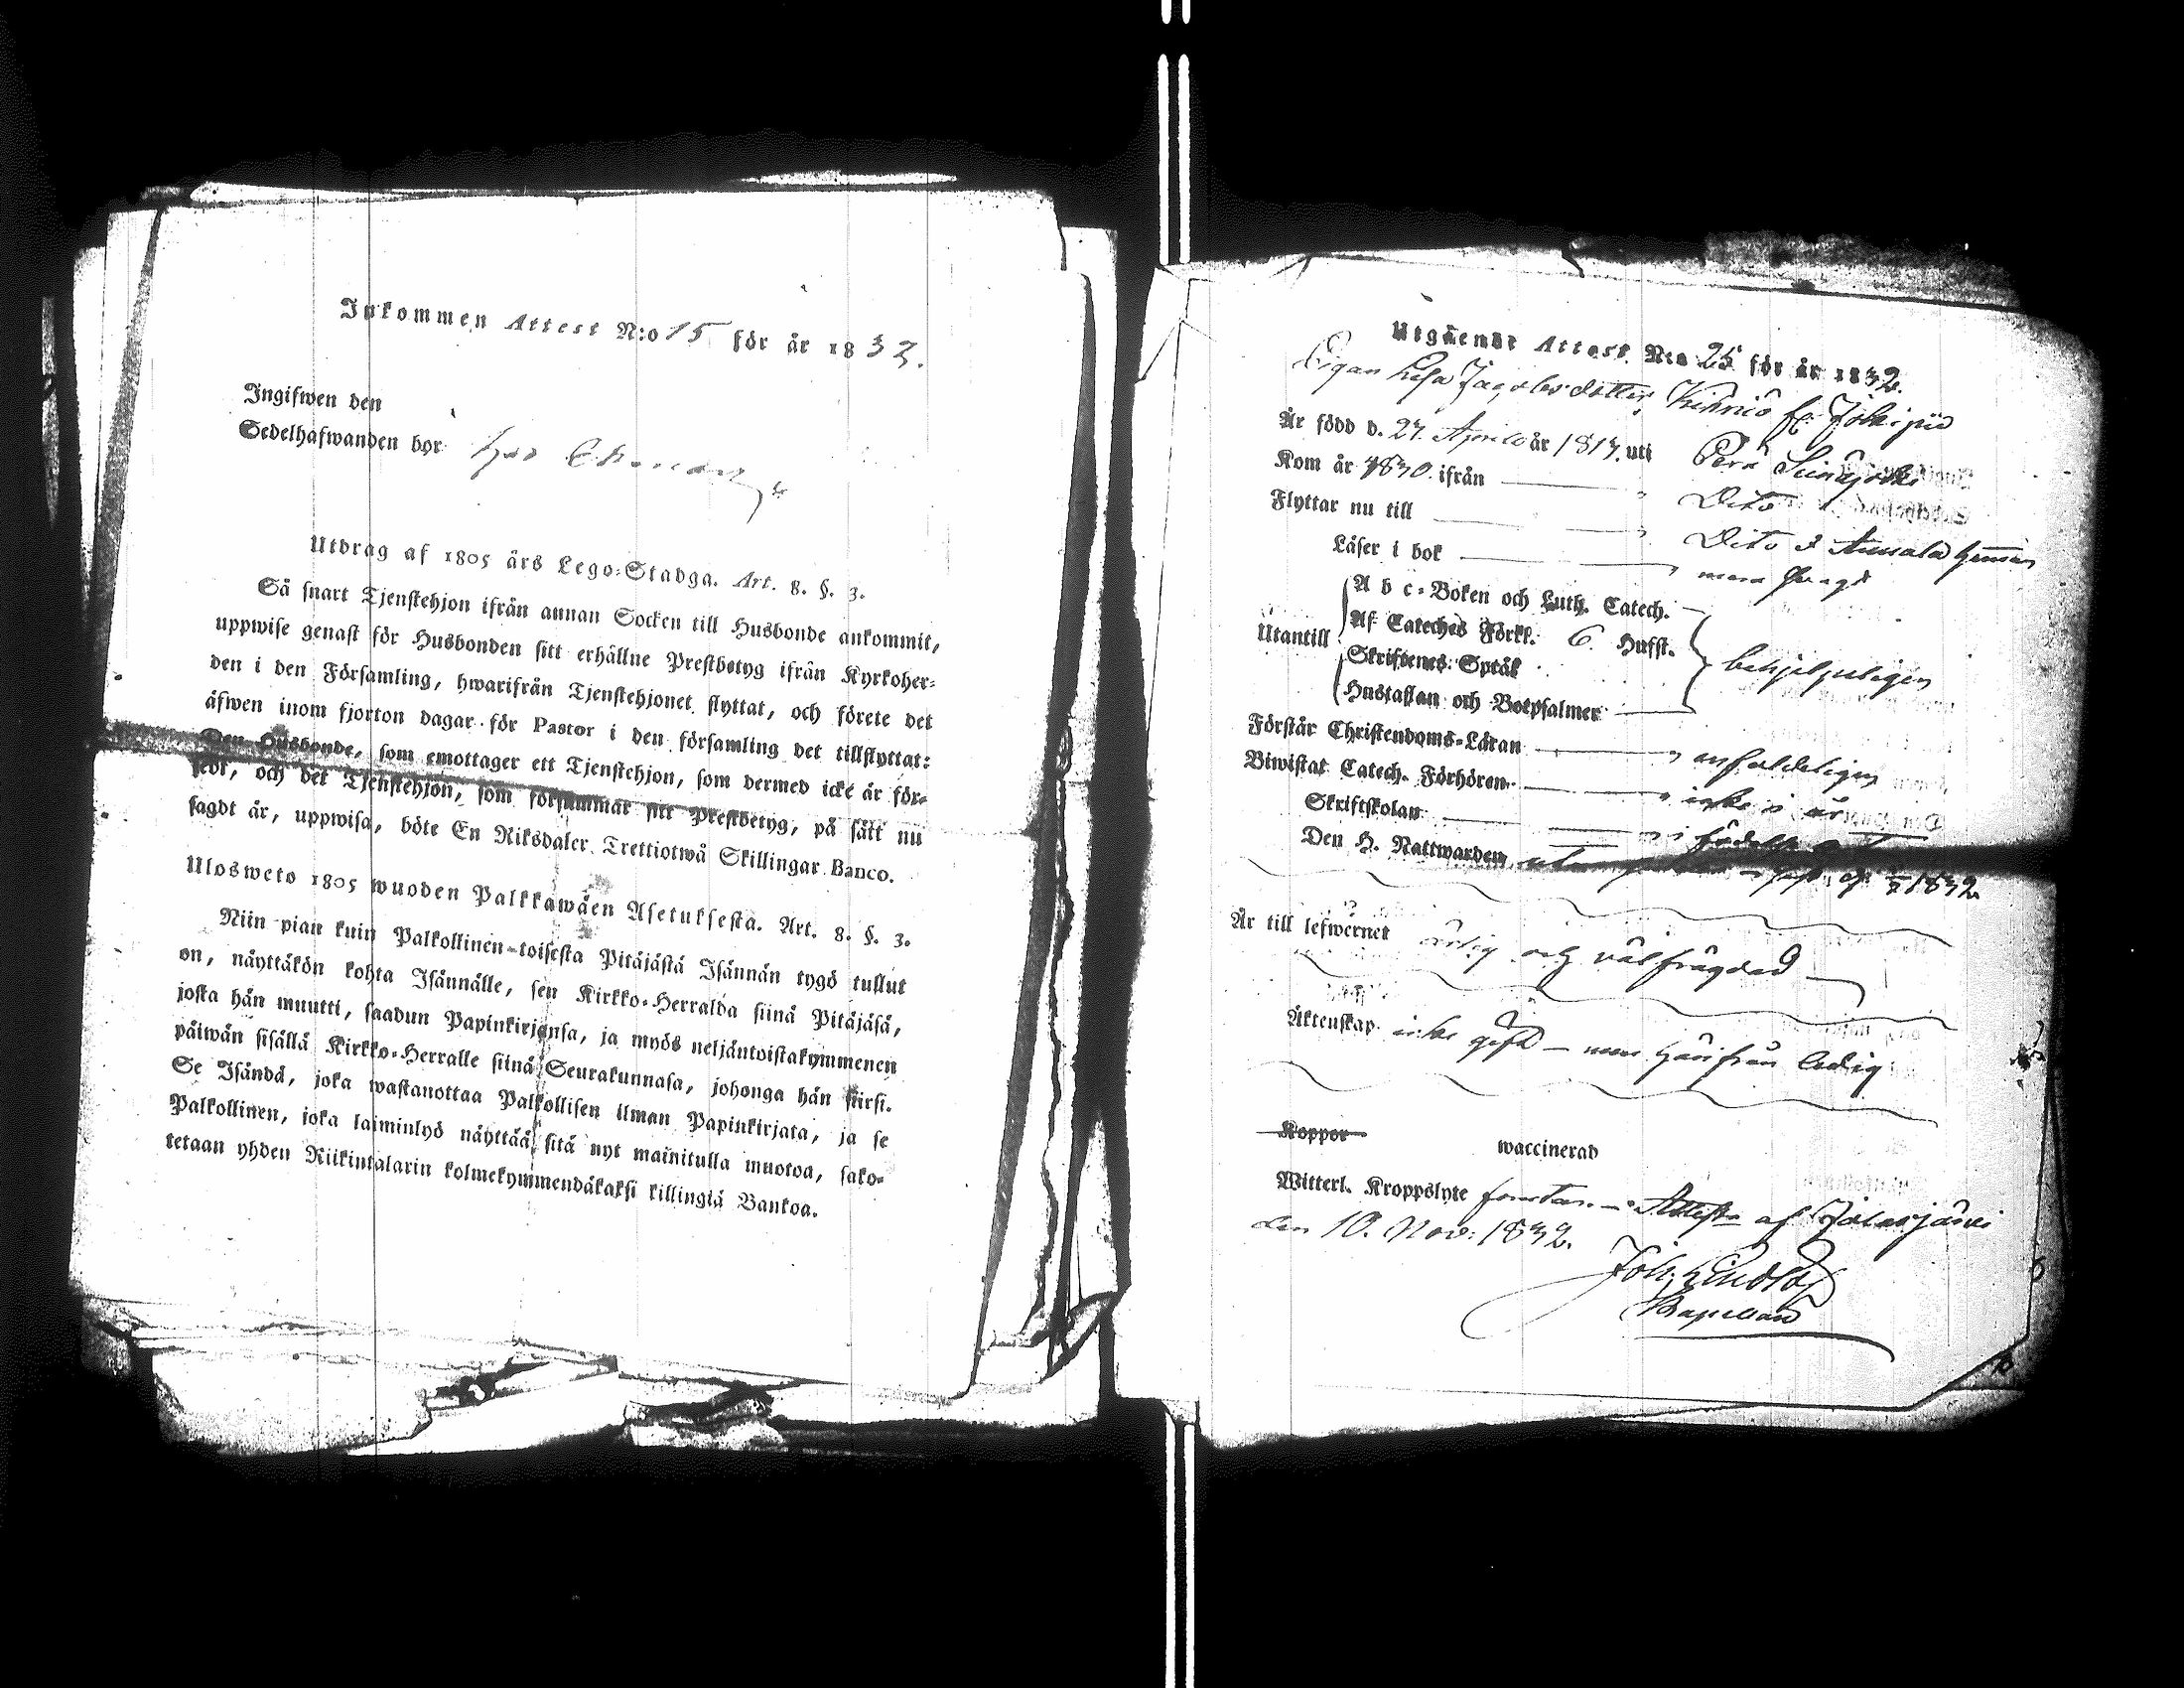 Inkommen Attest N:o 15 för år 1832.
Ingifwen den
Sedelhafwanden bor hos
Utdrag af 1805 års Lego-Stadga. Art. 8. §. 3.
Så snart Tjenstehjon ifrån annan Socken till Husbonde ankommit,
uppwise genast för Husbonden sitt erhållne Prestbetyg ifrån Kyrkoher-
den i den Församling, hwarifrån Tjenstehjonet flyttat, och förete det
äfwen inom fjorton dagar för Pastor i den församling det tillflyttat:
Den Husbonde, som emottager ett Tjenstehjon, som dermed icke är för-
sedt, och det Tjenstehjon, som försummar sitt Prestbetyg, på sätt nu
sagdt är, uppwisa, böte En Riksdaler Trettiotwå Skillingar Banco.
Ulosweto 1805 wuoden Palkkawäen Asetuksesta. Art. 8. §. 3.
Niin pian kuin Palkollinen toisesta Pitäjästä Isännän tygö tullut
on, näyttäkön kohta Isännälle, sen Kirkko-Herralda siinä Pitäjäsä,
josta hän muutti, saadun Papinkirjansa, ja myös neljäntoistakymmenen
päiwän sisällä Kirkko-Herralle siinä Seurakunnasa, johonga hän siirsi.
Se Isändä, joka wastanottaa Palkollisen ilman Papinkirjata, ja se
Palkollinen, joka laiminlyö näyttää sitä nyt mainitulla muotoa, sako-
tetaan yhden Riikintalarin kolmekymmendäkaksi killingiä Bankoa.
Utgående Attest N:o 25 för år 1832.
Pigan Lisa Jacobsdotter, Kihniö fr. Jokipii
Är född d. 27. Aprill år 1817. uti Perä Seinäjoki
Kom år 1830. ifrån Dito
Flyttar nu till Dito & Annala
Läser i bok
A b c-Boken och Luth. Catech.
Af Cateches Förkl. 6. Hufst.
Utantill behjelpeligen
Skriftenes Språk
Hustaflan och Botpsalmer
Förstår Christendoms-Läran enfaldeligen
Biwistat Catech. Förhören icke i år
Skriftskolan i
Den H. Nattwarden 1832
Är till lefwernet ärlig och välfrägdad
Äktenskap icke gift — men härifrån ledig
Koppor waccinerad
Witterl. Kroppslyte Attest. af Jalasjärvi
den 10. Nov: 1832.
Joh.
Kapellan